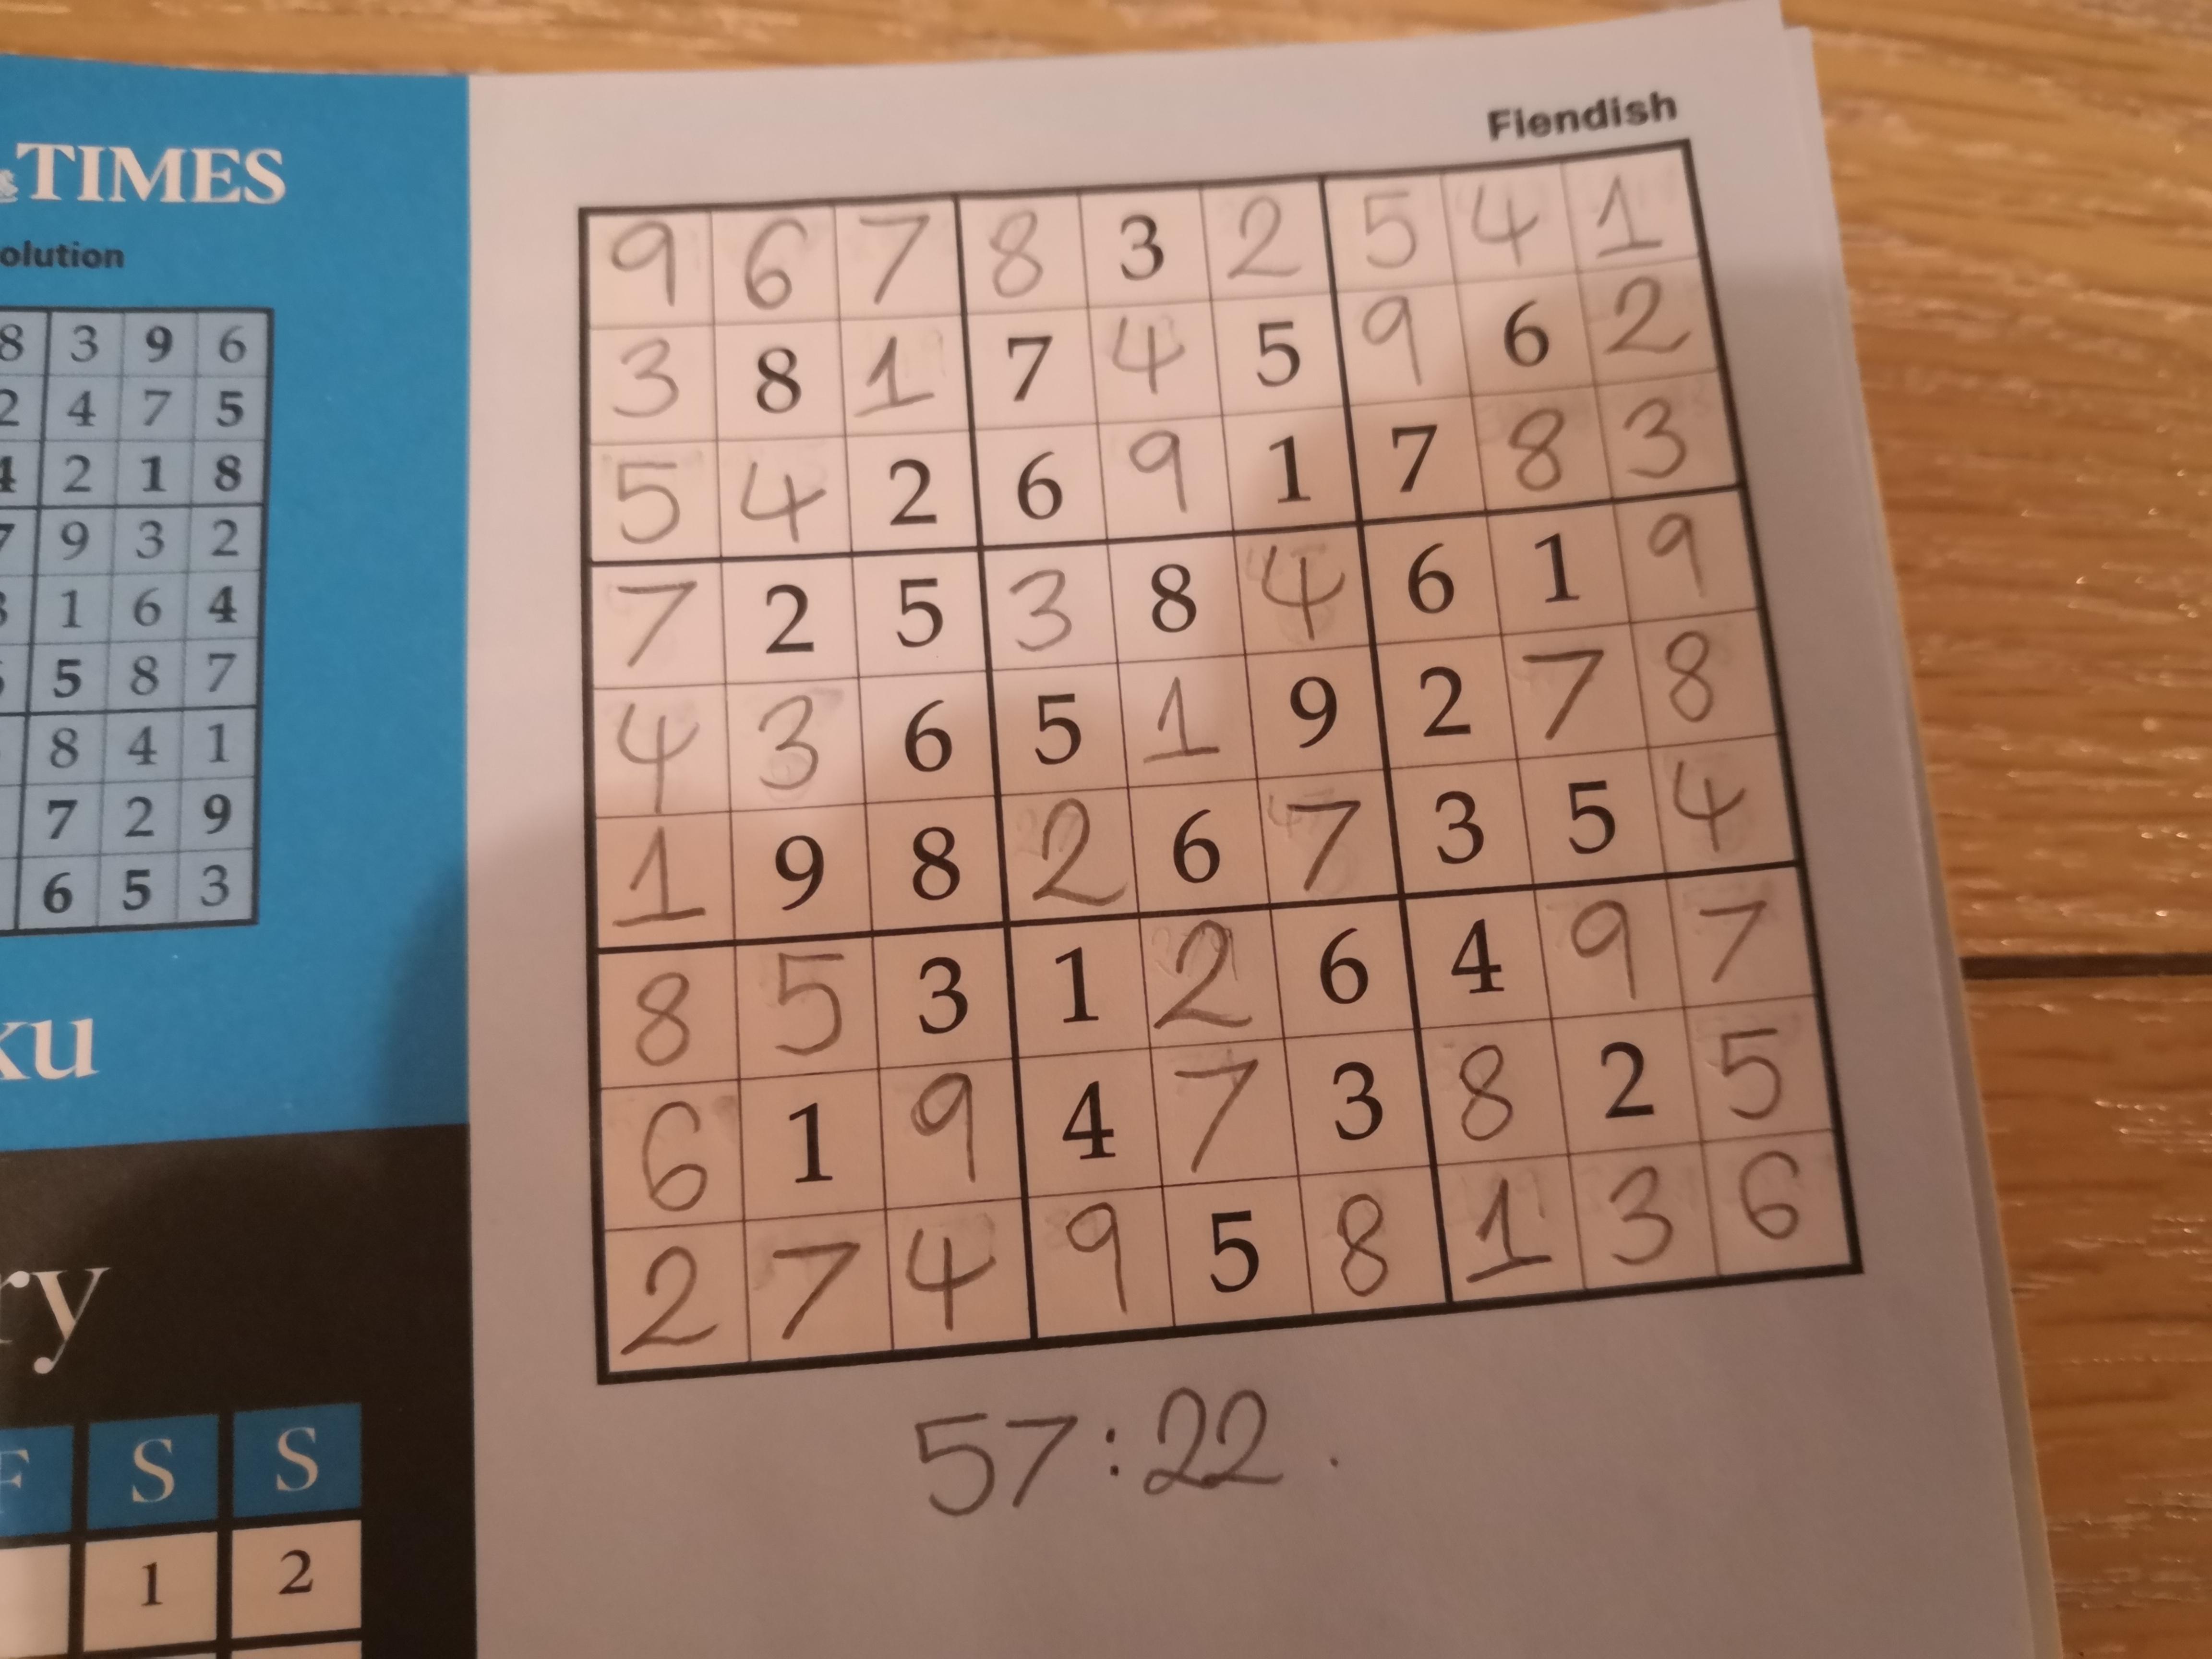 TIMES
olution
8 3 9 6
2 4 7 5
4 2 1 8
7 9 3 2
1 6 4
5 8 7
8 4 1
7 2 9
6 5 3
ku
ry
F S S
1 2
Fiendish
9 6 7 8 3 2 5 4 1
3 8 1 7 4 5 9 6 2
5 4 2 6 9 1 7 8 3
7 2 5 3 8 4 6 1 9
4 3 6 5 1 9 2 7 8
1 9 8 2 6 7 3 5 4
8 5 3 1 2 6 4 9 7
6 1 9 4 7 3 8 2 5
2 7 4 9 5 8 1 3 6
57:22.